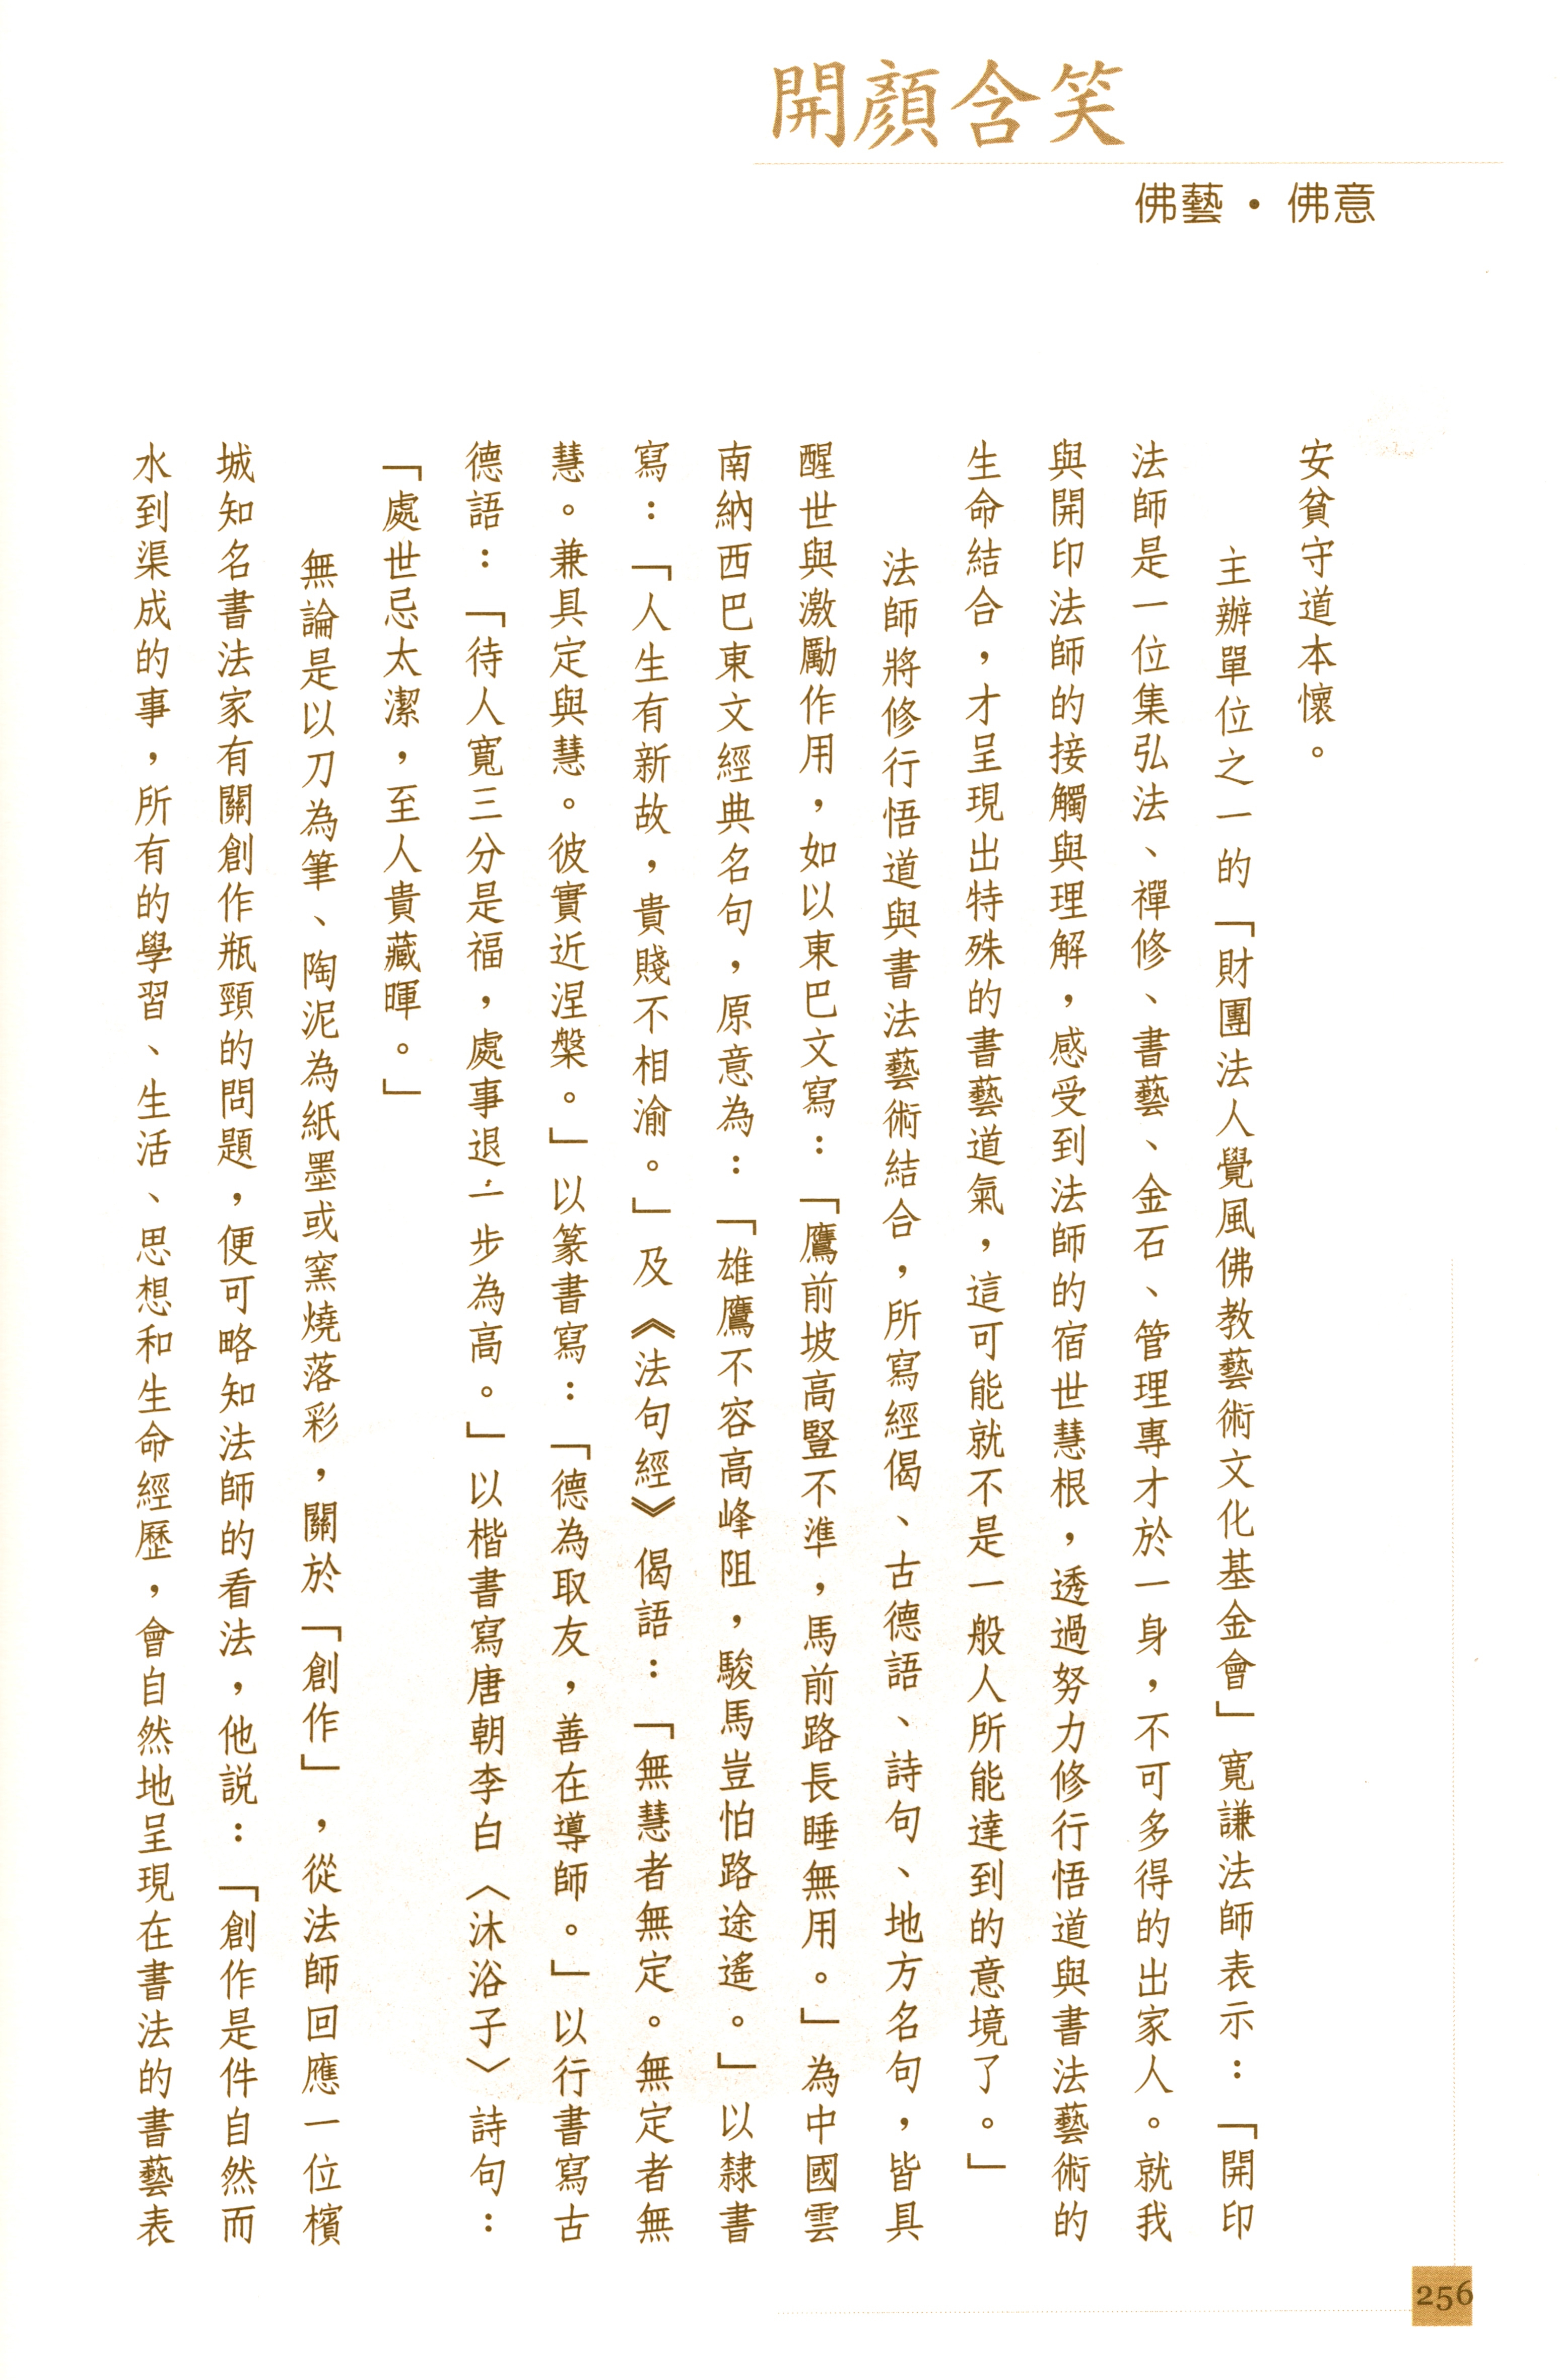 開顏含笑
佛藝・佛意
安貧守道本懷。
主辦單位之一的「財團法人覺風佛教藝術文化基金會」寬謙法師表示：「開印
法師是一位集弘法、禪修、書藝、金石、管理專才於一身，不可多得的出家人。就我
與開印法師的接觸與理解，感受到法師的宿世慧根，透過努力修行悟道與書法藝術的
生命結合，才呈現出特殊的書藝道氣，這可能就不是一般人所能達到的意境了。」
法師將修行悟道與書法藝術結合，所寫經偈、古德語、詩句、地方名句，皆具
醒世與激勵作用，如以東巴文寫：「鷹前坡高豎不準，馬前路長睡無用。」為中國雲
南納西巴東文經典名句，原意為：「雄鷹不容高峰阻，駿馬豈怕路途遙。」以隸書
寫：「人生有新故，貴賤不相渝。」及《法句經》偈語：「無慧者無定。無定者無
慧。兼具定與慧。彼實近涅槃。」以篆書寫：「德為取友，善在導師。」以行書寫古
德語：「待人寬三分是福，處事退一步為高。」以楷書寫唐朝李白〈沐浴子〉詩句：
「處世忌太潔，至人貴藏暉。」
無論是以刀為筆、陶泥為紙墨或窯燒落彩，關於「創作」，從法師回應一位檳
城知名書法家有關創作瓶頸的問題，便可略知法師的看法，他説：「創作是件自然而
水到渠成的事，所有的學習、生活、思想和生命經歷，會自然地呈現在書法的書藝表
256